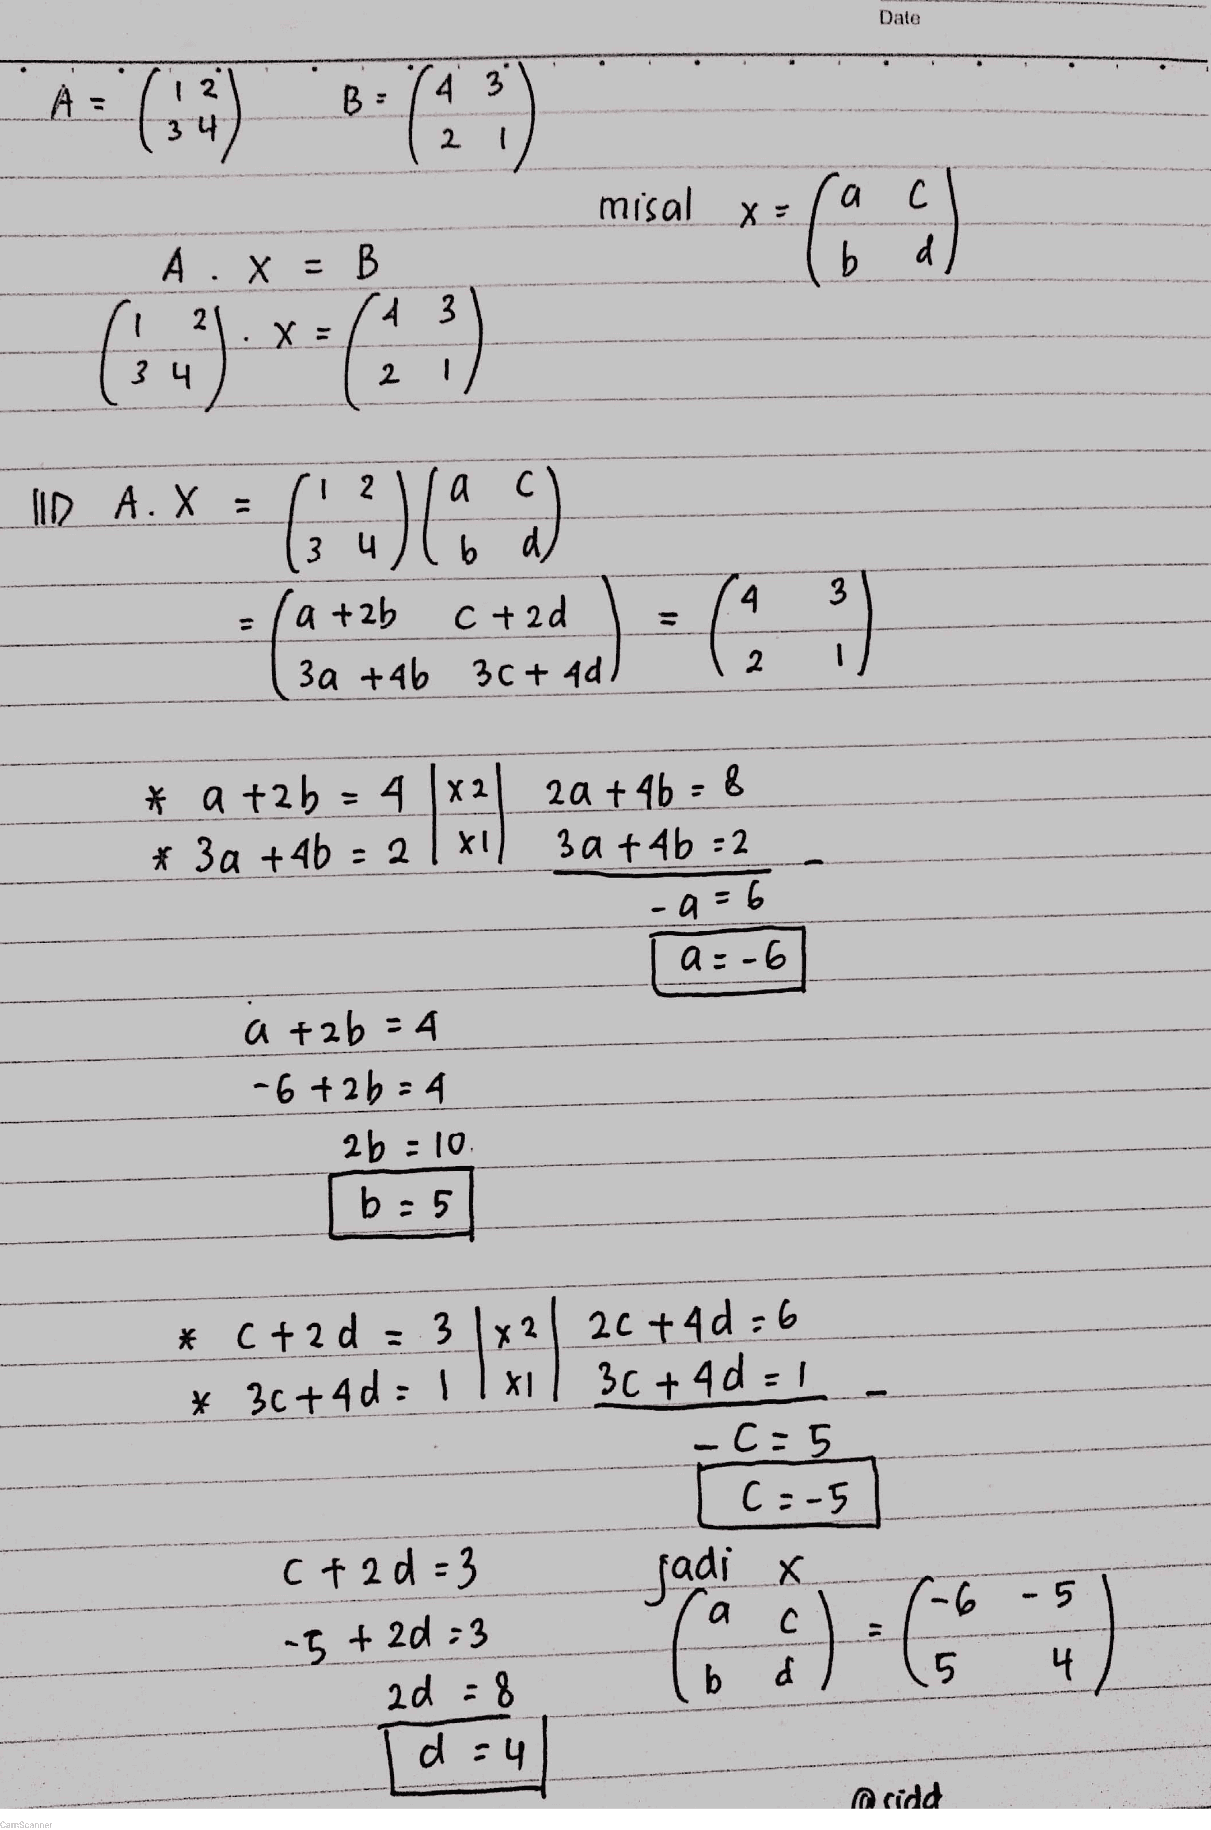 Date
A = ( 1 2 ) B = ( 4 3 )
( 3 4 ) ( 2 1 )
misal x = ( a c )
( b d )
A . X = B
( 1 2 ) . X = ( 4 3 )
( 3 4 ) ( 2 1 )
A . X = ( 1 2 ) ( a c )
( 3 4 ) ( b d )
= ( a + 2b c + 2d ) = ( 4 3 )
( 3a + 4b 3c + 4d ) ( 2 1 )
* a + 2b = 4 | x2 | 2a + 4b = 8
* 3a + 4b = 2 | x1 | 3a + 4b = 2 -
- a = 6
a = -6
a + 2b = 4
-6 + 2b = 4
2b = 10
b = 5
* c + 2d = 3 | x2 | 2c + 4d = 6
* 3c + 4d = 1 | x1 | 3c + 4d = 1 -
- c = 5
c = -5
c + 2d = 3
-5 + 2d = 3
2d = 8
d = 4
jadi x
( a c ) = ( -6 -5 )
( b d ) ( 5 4 )
@ridd
CamScanner